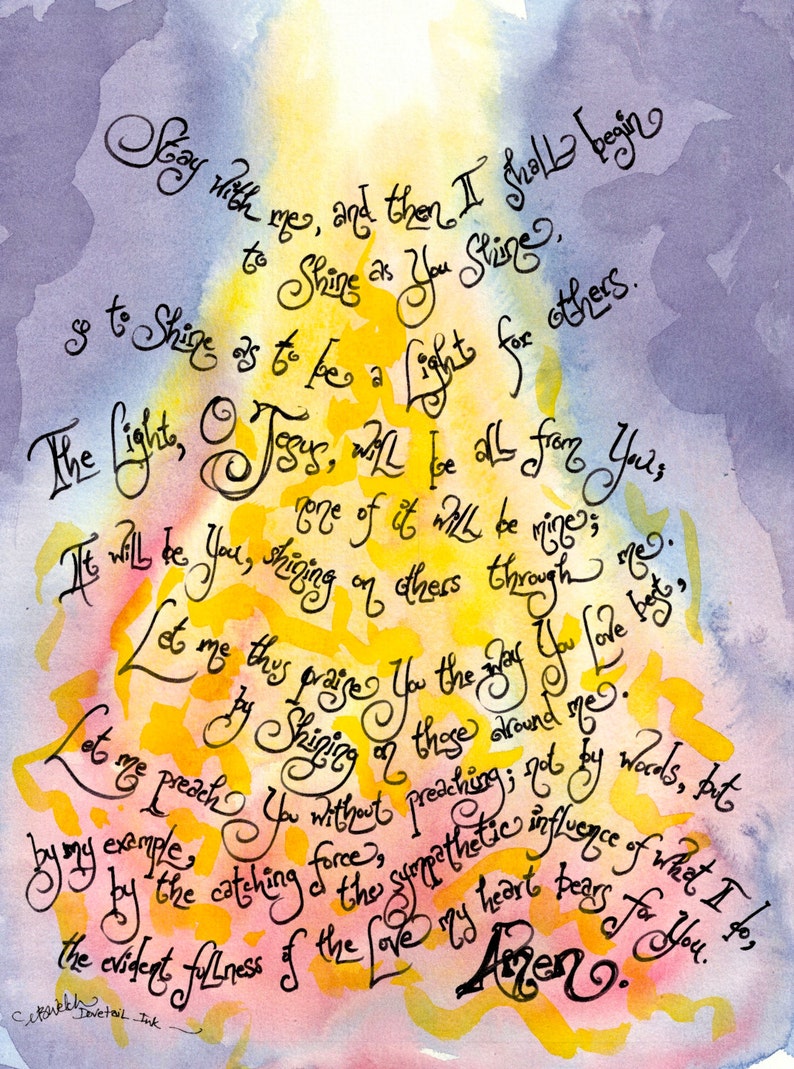 Stay with me, and then I shall begin
to Shine as You Shine,
so to Shine as to be a Light for others.
The Light, O Jesus, will be all from You;
none of it will be mine;
It will be You, shining on others through me.
Let me thus praise You the way You Love best,
by Shining on those around me.
Let me preach You without preaching; not by words, but
by my example,
by the catching force, the sympathetic influence of what I do,
the evident fullness of the Love my heart bears for You.
Amen.
Dovetail Ink